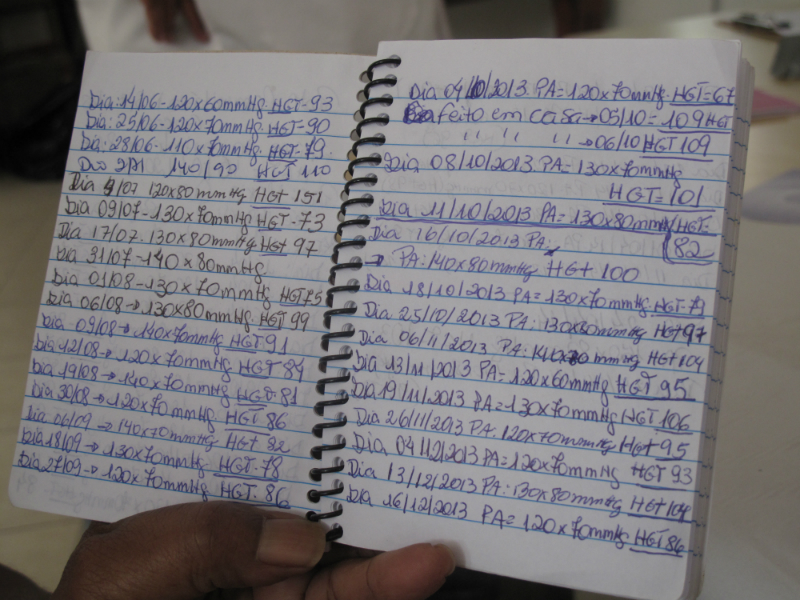 Dia: 14/06-120x60mmHg. HGT-93
Dia: 25/06-120x70mmHg HGT-90
Dia: 28/06-110x70mmHg. HGT-79.
140/90 HGT 110
Dia 4/07 120x80mmHg HGT 151
Dia 09/07-130x70mmHg HGT-73
Dia 17/07. 130x90mmHg HGT 97
Dia 31/07-140x80mmHg
Dia 01/08-130x70mmHg HGT 75
Dia 06/08→130x80mmHg HGT 99
Dia 09/08→140x70mmHg HGT 91
Dia 12/08→120x70mmHg HGT 84
Dia 19/08→140x70mmHg HGT-81
Dia 30/08→120x70mmHg HGT 86
Dia 06/09→140x70mmHg HGT 82
Dia 18/09→130x70mmHg. HGT-78
Dia 27/09→120x70mmHg HGT. 86
Dia 04/10/2013. PA=120x70mmHg. HGT=67
feito em casa→05/10=109 HGT
" " " →06/10 HGT 109
Dia 08/10/2013. PA=130x70mmHg
HGT=101
Dia 11/10/2013 PA=130x80mmHg/HGT
82
Dia 16/10/2013 PA:
→ PA:140x80mmHg HGT 100
Dia 18/10/2013 PA=130x70mmHg. HGT-79
Dia 25/10/2013 PA:130x80mmHg HGT 97
Dia 06/11/2013 PA: mmHg HGT 104
Dia 13/11/2013 PA=120x60mmHg HGT 95
Dia 19/11/2013 PA=130x70mmHg HGT 106
Dia 26/11/2013 PA: 120x70mmHg HGT 95
Dia 04/12/2013 PA=120x70mmHg HGT 93
Dia 13/12/2013 PA: 130x80mmHg HGT 104
Dia 16/12/2013 PA=120x70mmHg HGT 86